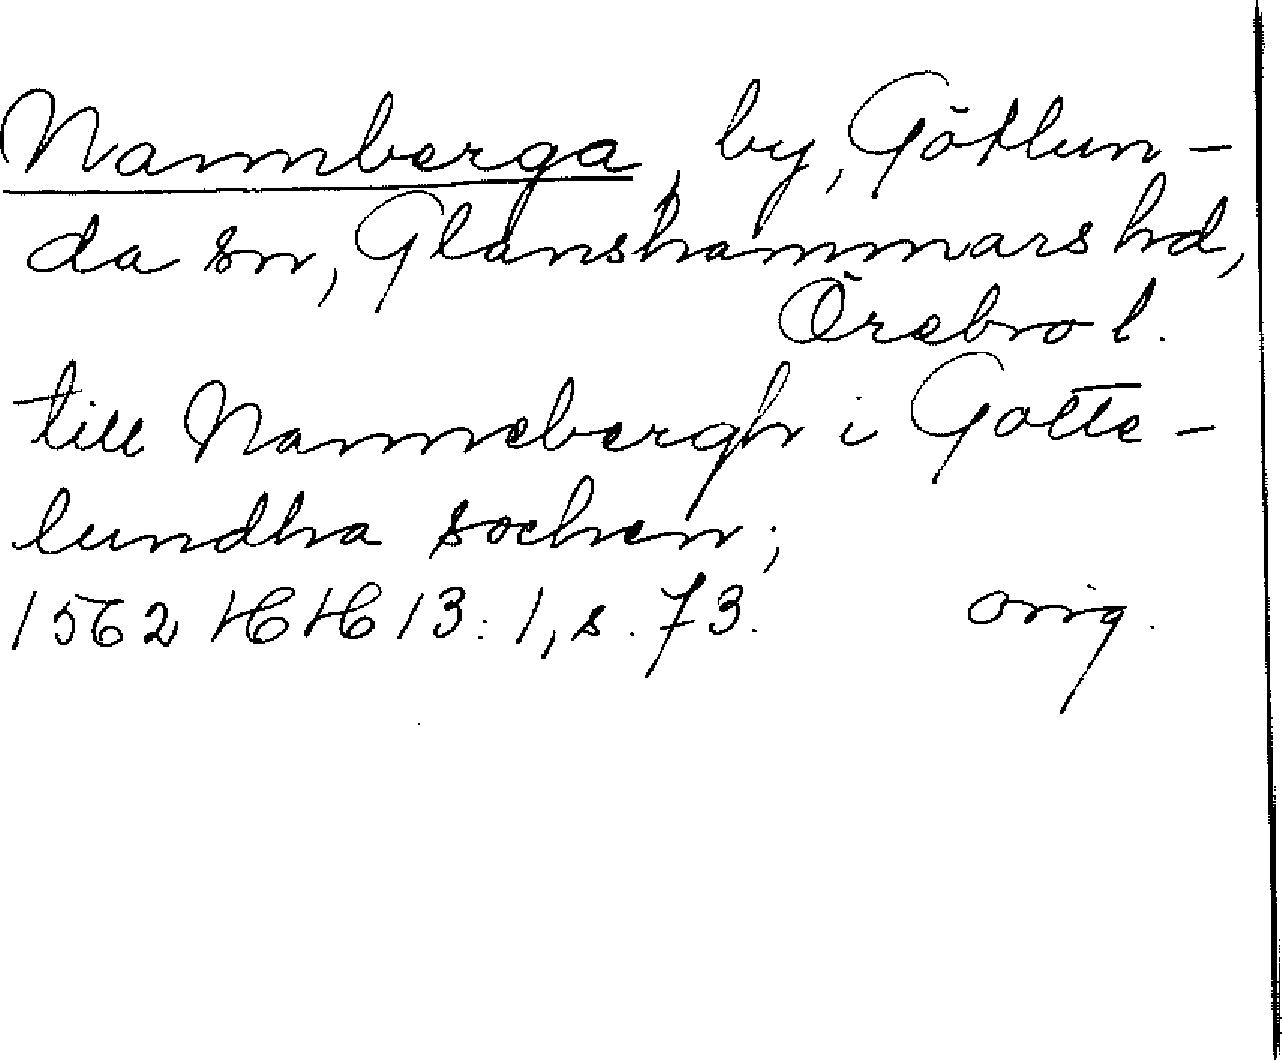 Nannberga, by, Götlun-
da sn, Glanshammars hd,
Örebro l.
till Nannebergh i Gotte-
lundha sochen;
1562 HH 13:1, s. 73. orig.